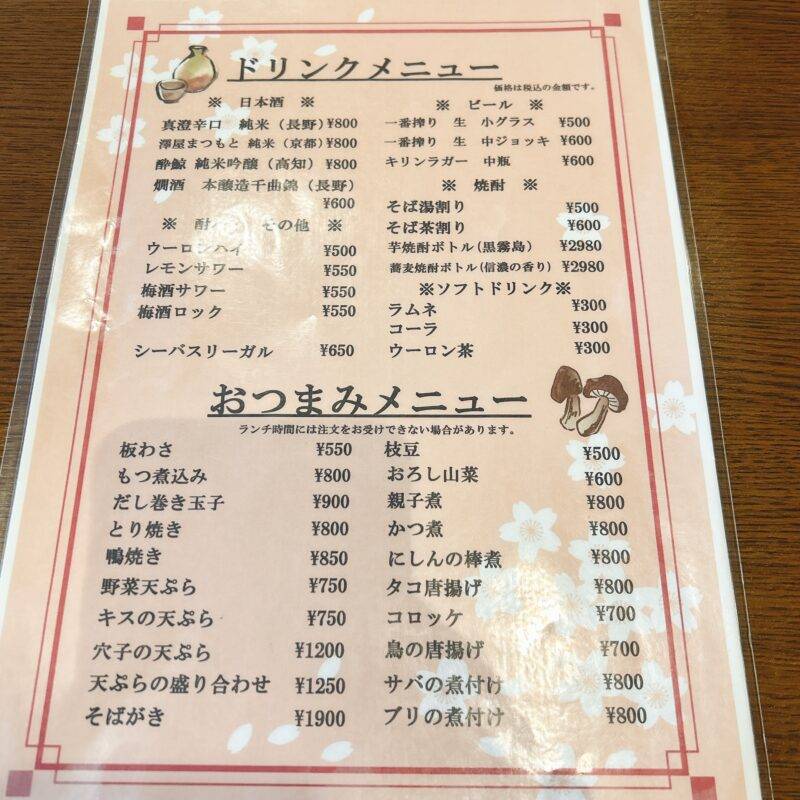 ドリンクメニュー
価格は税込の金額です。
※ 日本酒 ※
真澄辛口 純米（長野）¥800
澤屋まつもと 純米（京都）¥800
酔鯨 純米吟醸（高知）¥800
燗酒 本醸造千曲錦（長野）
¥600
※ 酎 その他 ※
ウーロンハイ ¥500
レモンサワー ¥550
梅酒サワー ¥550
梅酒ロック ¥550
シーバスリーガル ¥650
※ ビール ※
一番搾り 生 小グラス ¥500
一番搾り 生 中ジョッキ ¥600
キリンラガー 中瓶 ¥600
※ 焼酎 ※
そば湯割り ¥500
そば茶割り ¥600
芋焼酎ボトル(黒霧島) ¥2980
蕎麦焼酎ボトル(信濃の香り) ¥2980
※ソフトドリンク※
ラムネ ¥300
コーラ ¥300
ウーロン茶 ¥300
おつまみメニュー
ランチ時間には注文をお受けできない場合があります。
板わさ ¥550
もつ煮込み ¥800
だし巻き玉子 ¥900
とり焼き ¥800
鴨焼き ¥850
野菜天ぷら ¥750
キスの天ぷら ¥750
穴子の天ぷら ¥1200
天ぷらの盛り合わせ ¥1250
そばがき ¥1900
枝豆 ¥500
おろし山菜 ¥600
親子煮 ¥800
かつ煮 ¥800
にしんの棒煮 ¥800
タコ唐揚げ ¥800
コロッケ ¥700
鳥の唐揚げ ¥700
サバの煮付け ¥800
ブリの煮付け ¥800